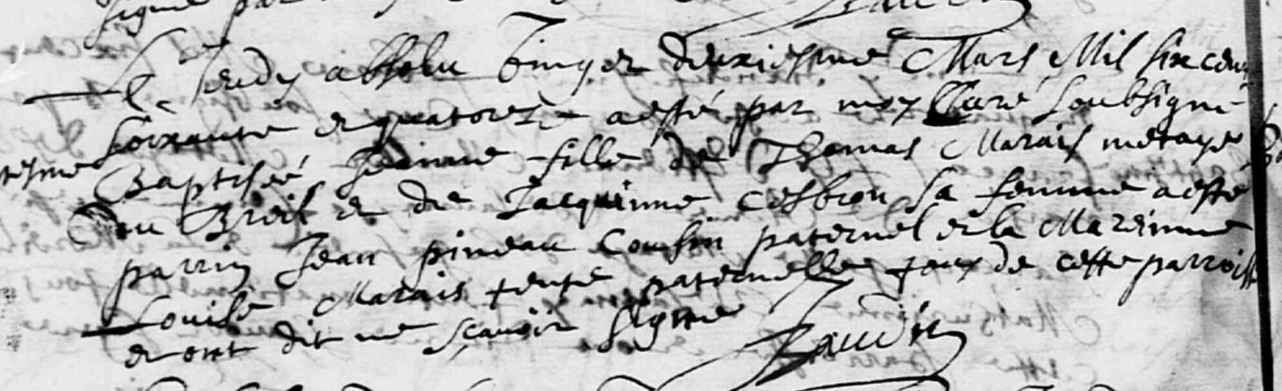 signé
Le Jeudy absolu vingt et deuxiesme Mars Mil six cens
soixante et quatorze a esté par moy Curé soubsigné
Baptisée Jeanne fille de Thomas Marais metaye
du Breil et de Jacquinne Cesbron sa femme a esté
parrin Jean pineau Cousin paternel et la Marainne
Louise Marais tente paternelle tous de cette parroisse
et ont dit ne sçavoir signe